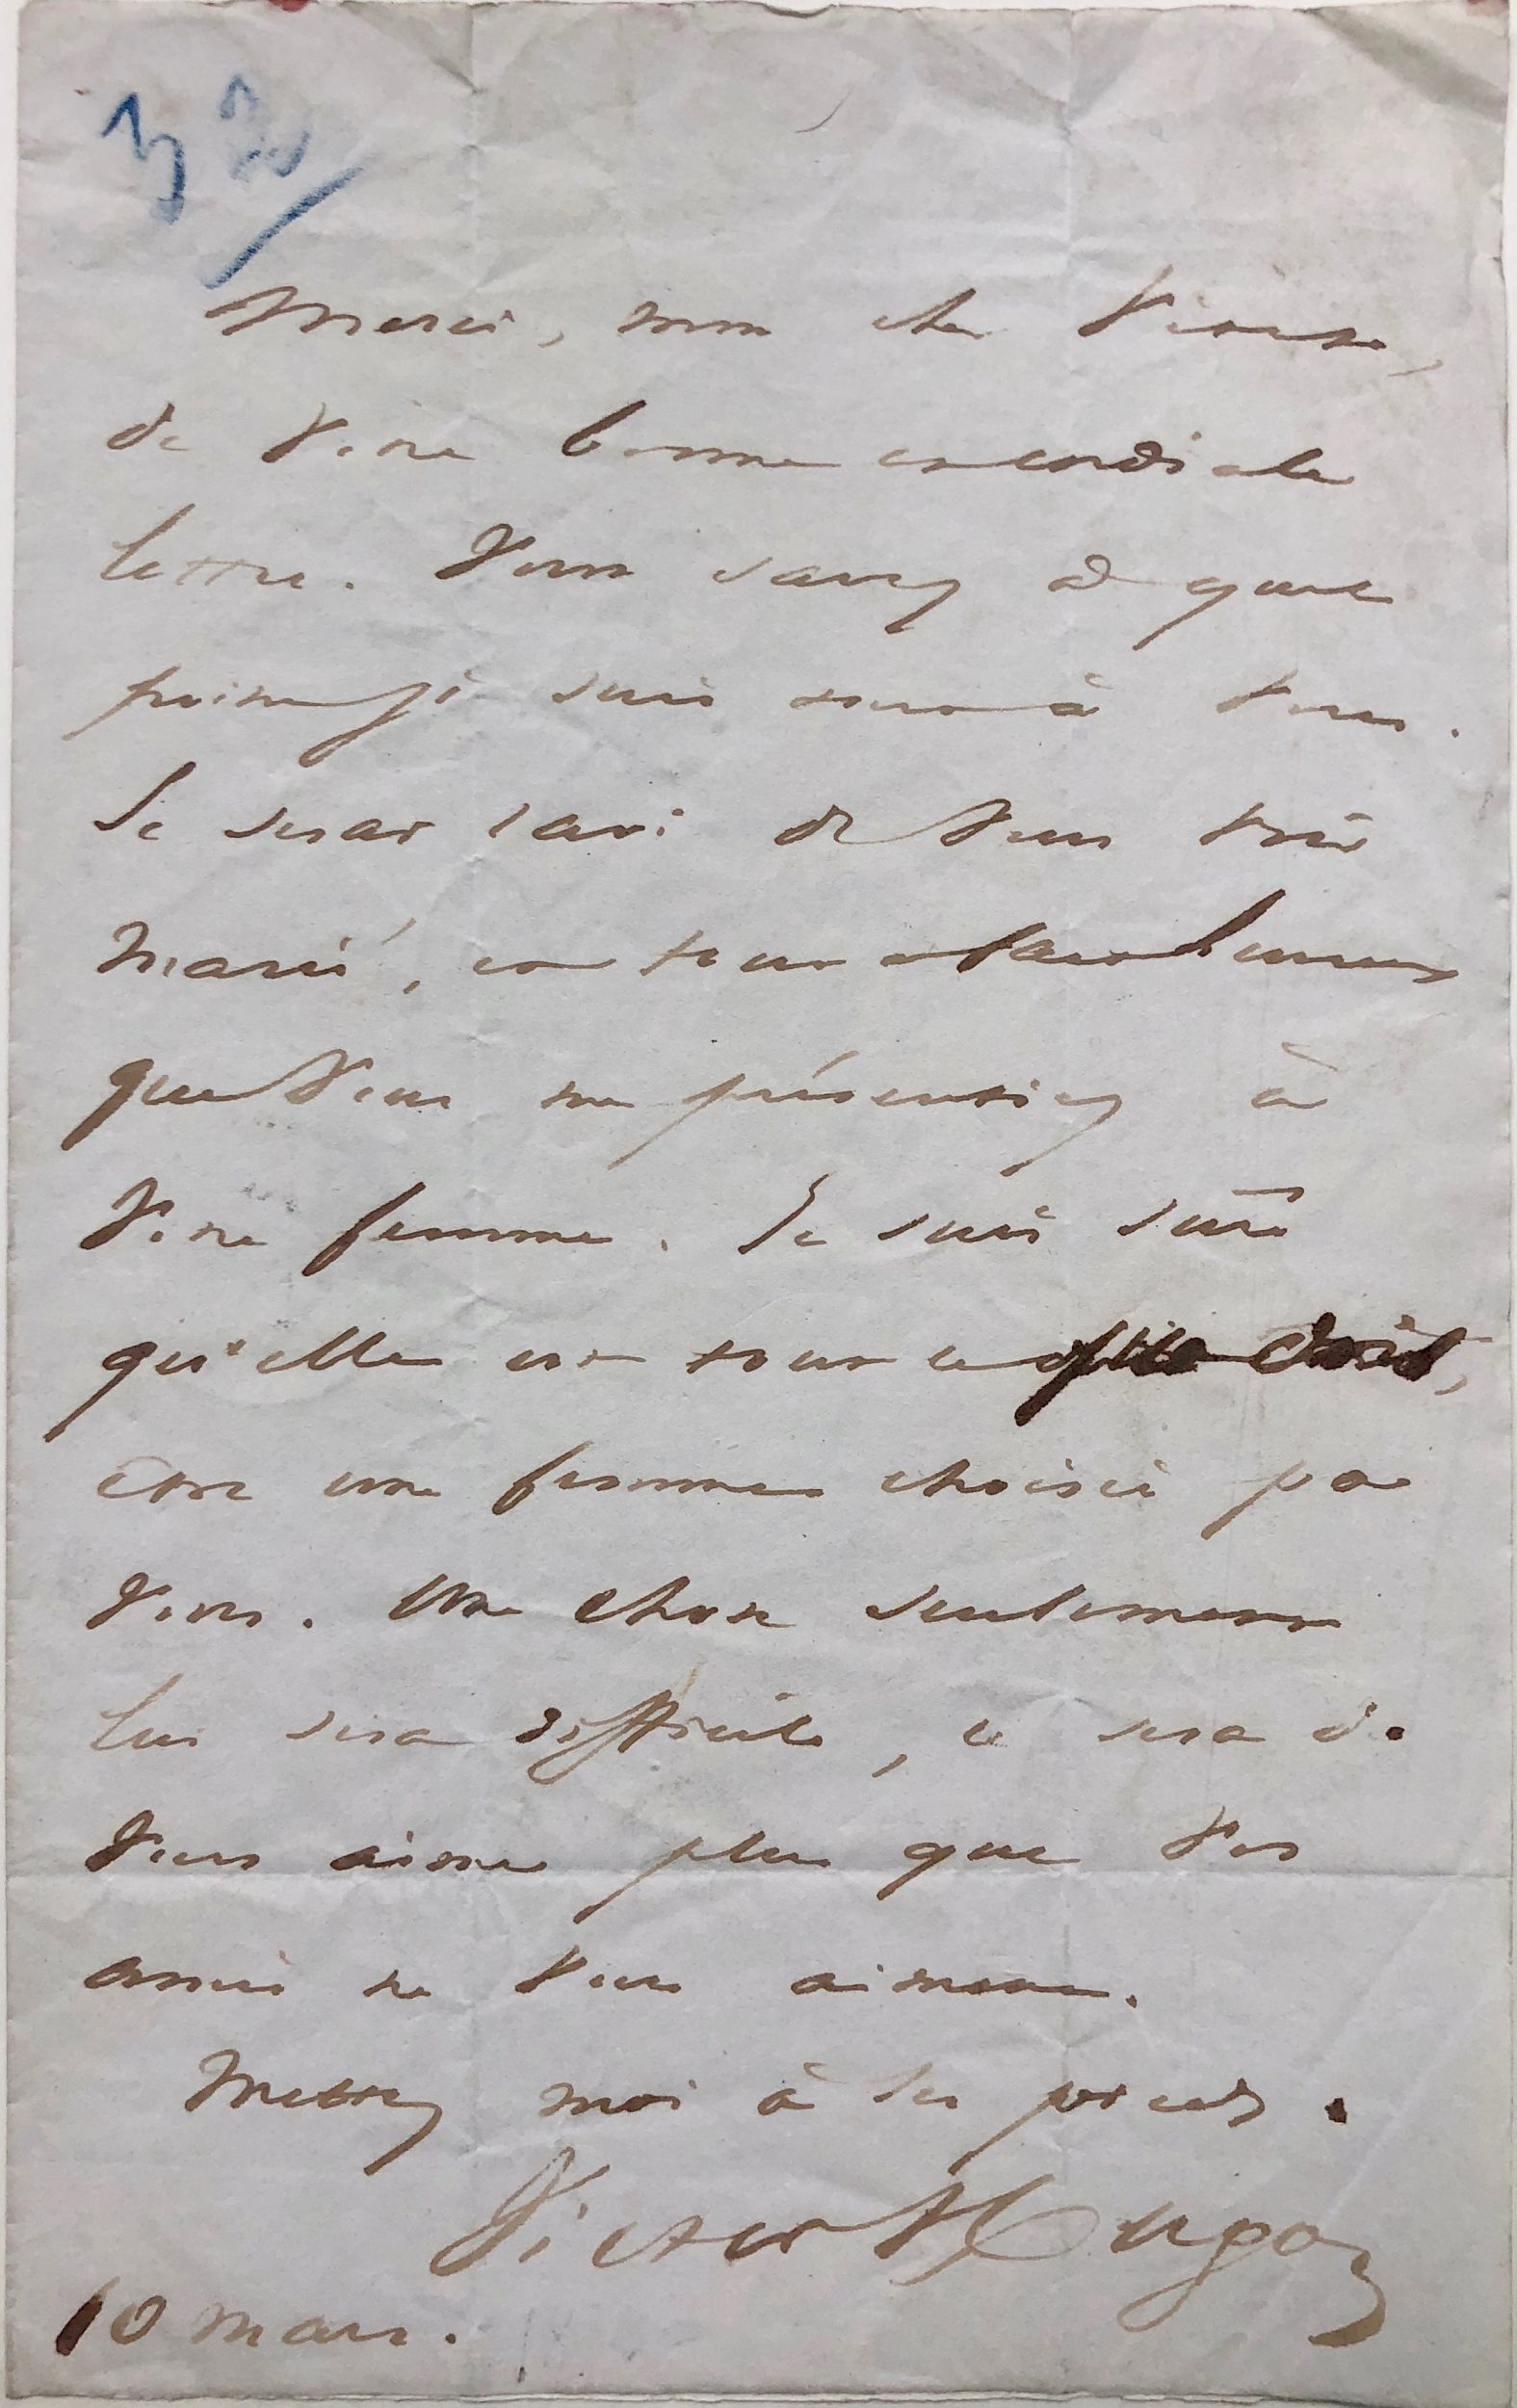 32
Merci, mon cher
de votre bonne et cordiale
lettre. Vous savez à quel
point je suis tout à vous.
Je serai ravi de vous voir
marié, et veux absolument
que vous me présentiez à
votre femme. Je suis sûr
qu'elle est tout ce que doit,
être une femme choisie par
vous. Une chose seulement
lui sera difficile, ce sera de
vous aimer plus que vos
amis ne vous aiment.
Mettez moi à ses pieds.
Victor Hugo
10 mars.